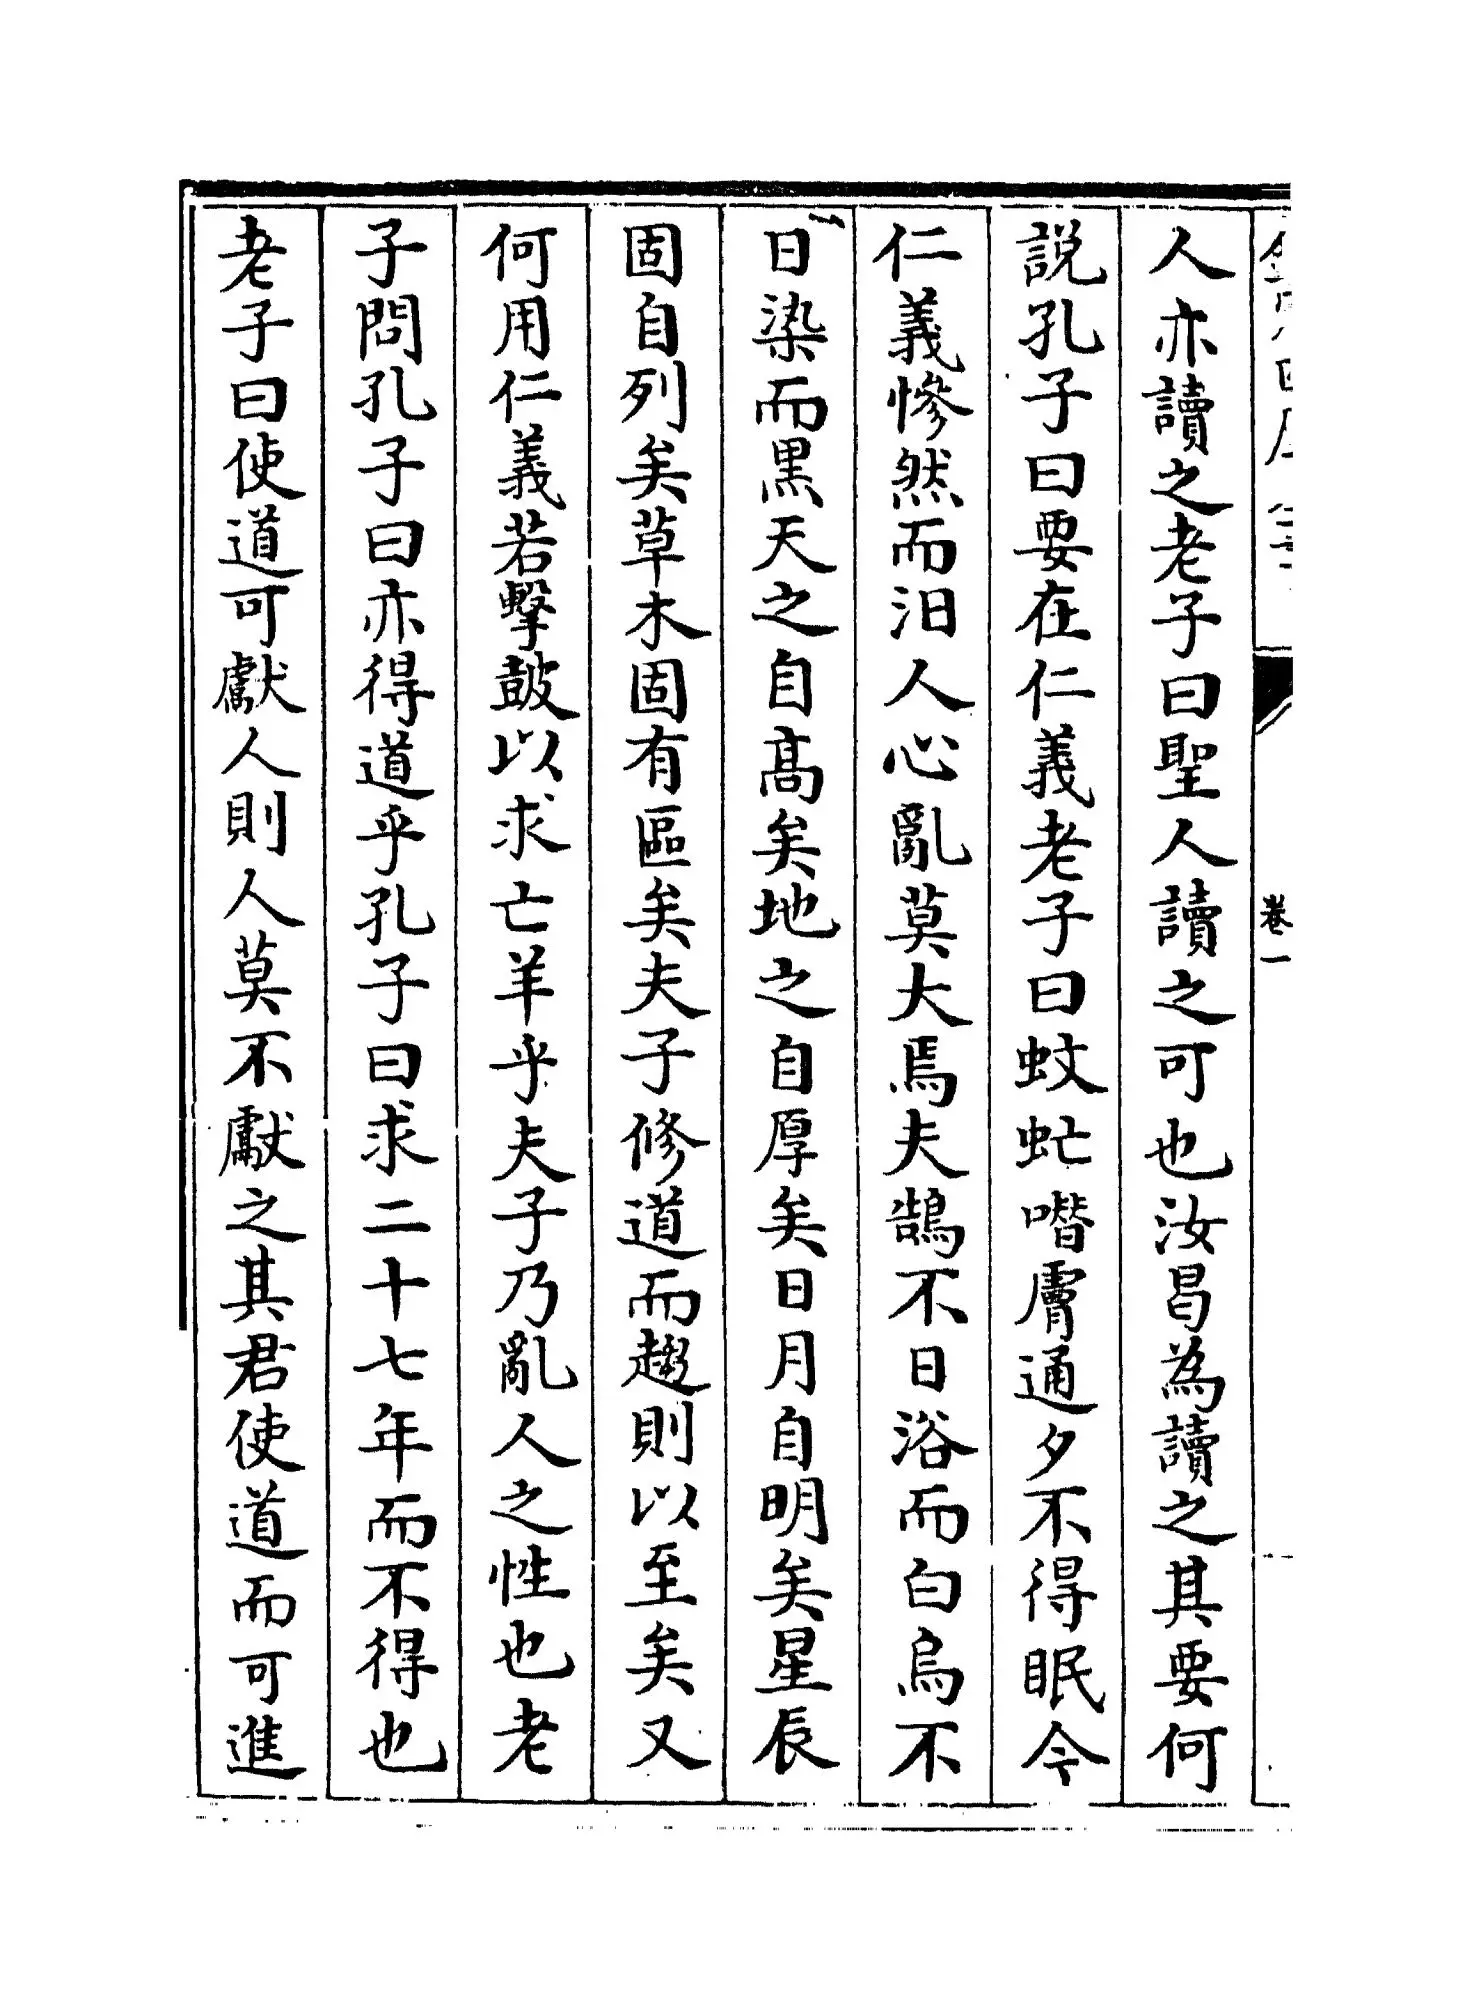 人亦讀之老子曰聖人讀之可也汝曷為讀之其要何
説孔子曰要在仁義老子曰蚊虻噆膚通夕不得眠今
仁義慘然而汨人心亂莫大焉夫鵠不日浴而白烏不
日染而黒天之自髙矣地之自厚矣日月自明矣星辰
固自列矣草木固有區矣夫子修道而趨則以至矣又
何用仁義若擊鼓以求亡羊乎夫子乃亂人之性也老
子問孔子曰亦得道乎孔子曰求二十七年而不得也
老子曰使道可獻人則人莫不獻之其君使道而可進
卷一